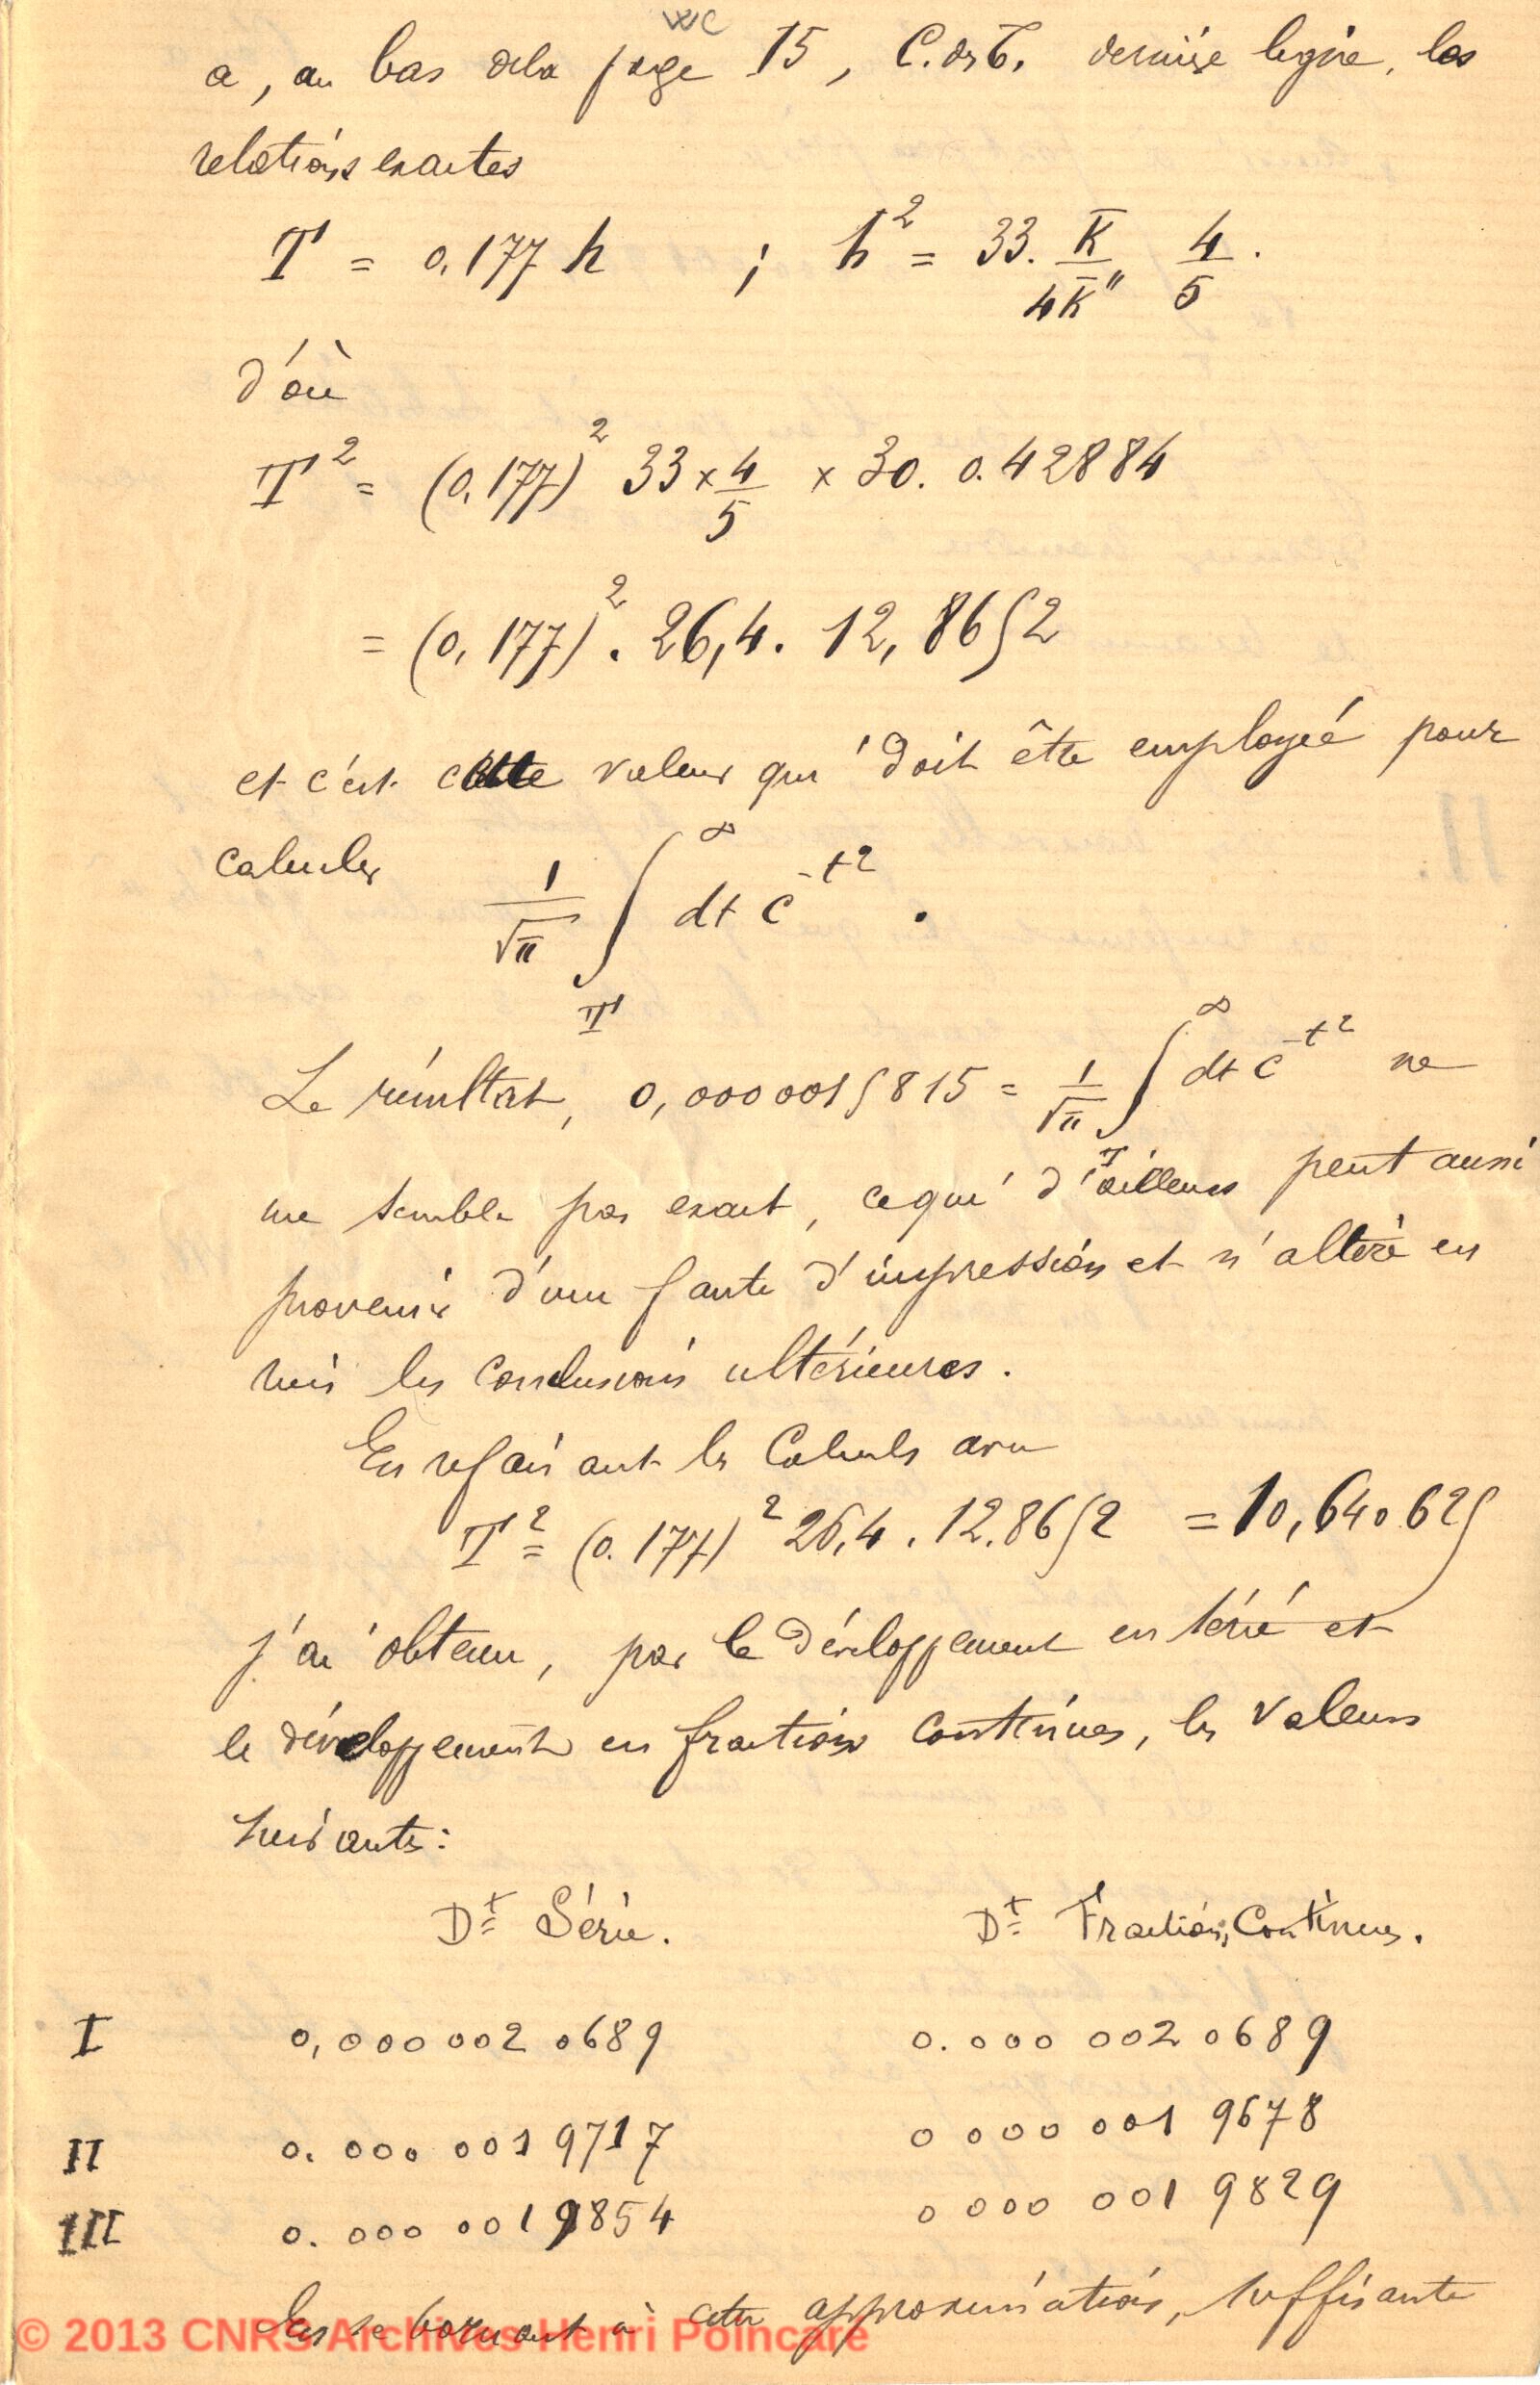 a, au bas dela page 15, C. de T. dernière ligne, les
relations exactes
T = 0.177 h ; h² = 33. K/4K" 4/5.
d'où
T² = (0.177)² 33 × 4/5 × 30. 0.42884
= (0,177)². 26,4. 12,8652
et c'est cette valeur qui doit être employée pour
calculer 1/√π ∫_T^∞ dt e^{-t²}.
Le résultat, 0,00000015815 = 1/√π ∫_T^∞ dt e^{-t²} ne
me semble pas exact, ce qui d'ailleurs peut aussi
provenir d'une faute d'impression et n'altère en
rien les conclusions ultérieures.
En refaisant les calculs avec
T² = (0.177)² 26,4. 12.8652 = 10,640625
j'ai obtenu, par le développement en série et
le développement en fractions continues, les valeurs
suivantes:
Dt Série. Dt Fractions Continues.
I 0,000 002 0689 0.000 002 0689
II 0.000 001 9717 0 000 001 9678
III 0.000 001 9854 0 000 001 9829
En se bornant à cette approximation, suffisante
© 2013 CNRS Archives Henri Poincaré